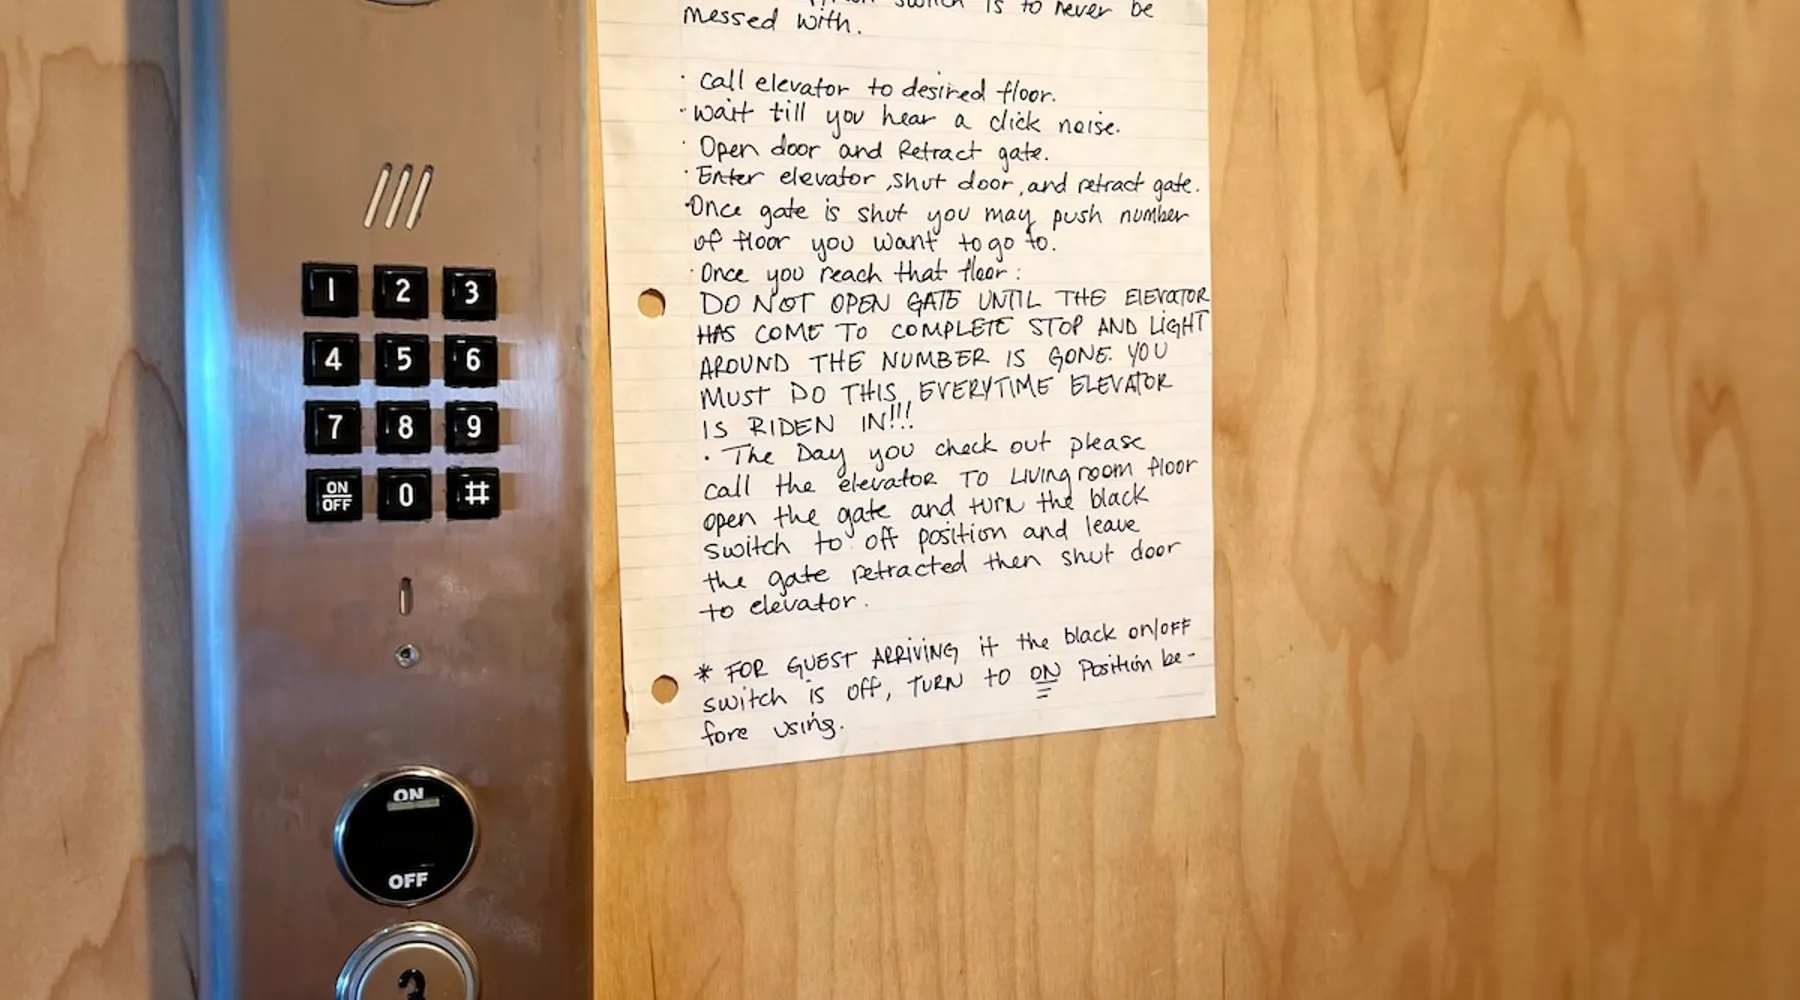 switch is to never be
messed with.
· Call elevator to desired floor.
· Wait till you hear a click noise.
· Open door and Retract gate.
· Enter elevator, shut door, and retract gate.
· Once gate is shut you may push number
of floor you want to go to.
· Once you reach that floor:
DO NOT OPEN GATE UNTIL THE ElEVATOR
HAS COME TO COMPLETE STOP AND LIGHT
AROUND THE NUMBER IS GONE. YOU
MUST DO THIS EVERYTIME ELEVATOR
IS RIDEN IN!!!
· The Day you check out please
call the elevator TO Livingroom floor
open the gate and turn the black
switch to off position and leave
the gate retracted then shut door
to elevator.
* FOR GUEST ARRIVING if the black on/OFF
switch is off, TURN to ON Position be-
fore using.
1 2 3
4 5 6
7 8 9
ON
OFF 0 #
ON
OFF
3